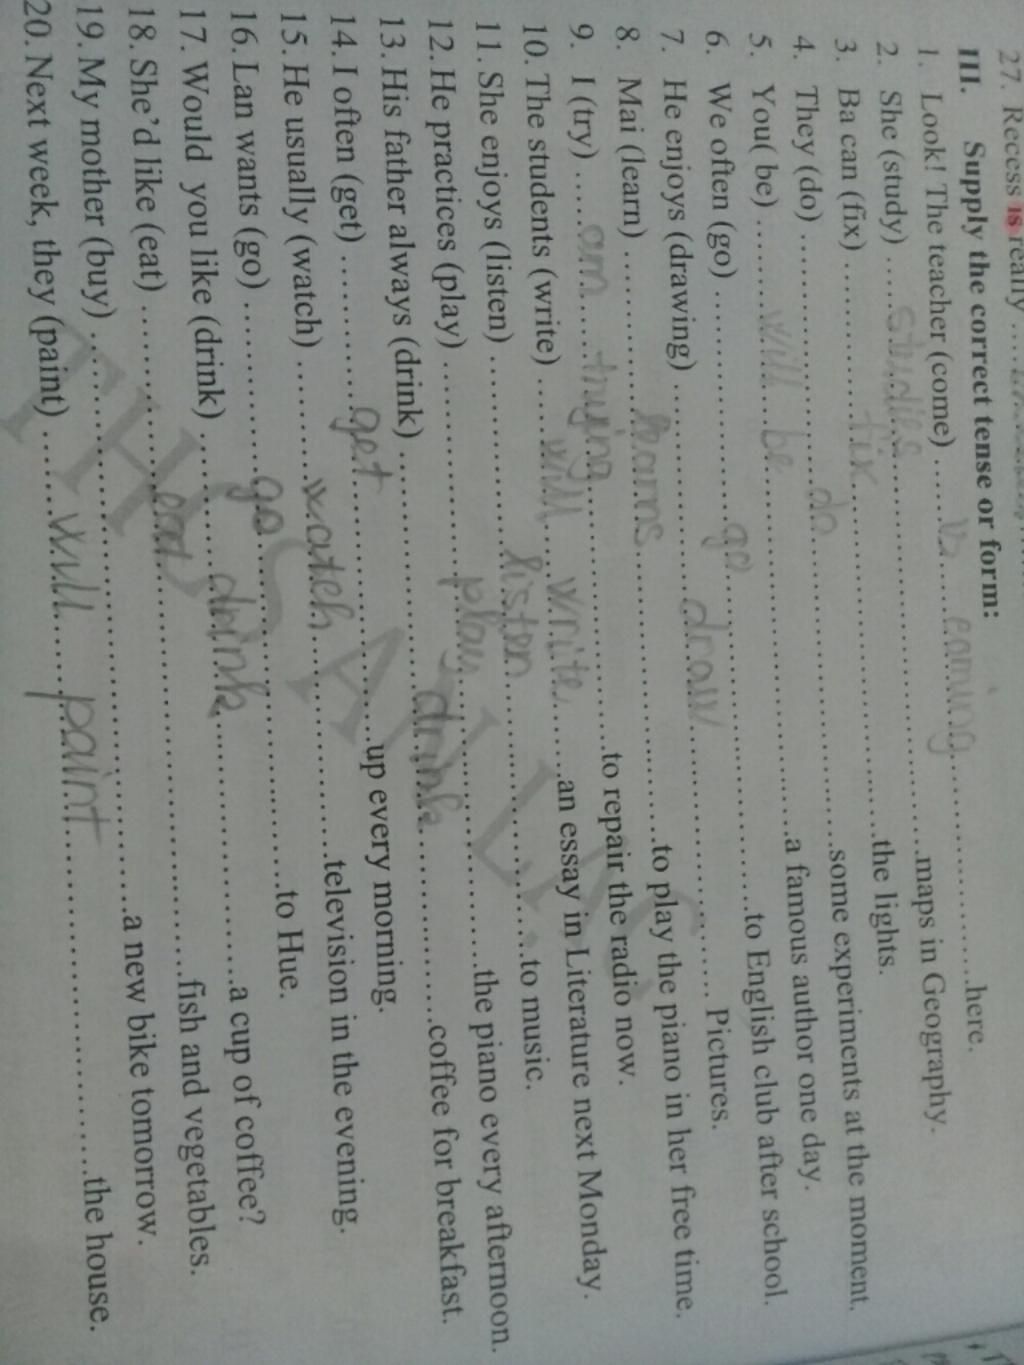 27. Recess is really
III. Supply the correct tense or form:
1. Look! The teacher (come) ..... is ..... coming ..............here.
2. She (study) .... studies ..............................maps in Geography.
3. Ba can (fix) .............. fix ..............................the lights.
4. They (do) ..................... do ..............................some experiments at the moment.
5. You( be) ........ will ... be ..............................a famous author one day.
6. We often (go) ..................... go ..............................to English club after school.
7. He enjoys (drawing) ................... draw .............................. Pictures.
8. Mai (learn) ............... learns ..............................to play the piano in her free time.
9. I (try) ..... am ..... trying ..............................to repair the radio now.
10. The students (write) .... will ... write .....an essay in Literature next Monday.
11. She enjoys (listen) .................. listen ..............................to music.
12. He practices (play) .................... play ..............................the piano every afternoon.
13. His father always (drink) .................... drink ..................coffee for breakfast.
14. I often (get) .............. get ..............................up every morning.
15. He usually (watch) .......... watch ....................television in the evening.
16. Lan wants (go) ................ go ..............................to Hue.
17. Would you like (drink) .......... drink ..............................a cup of coffee?
18. She'd like (eat) ............... eat ..............................fish and vegetables.
19. My mother (buy) ..................................................a new bike tomorrow.
20. Next week, they (paint) ...... will ..... paint ..............................the house.
THCS AN LẠC